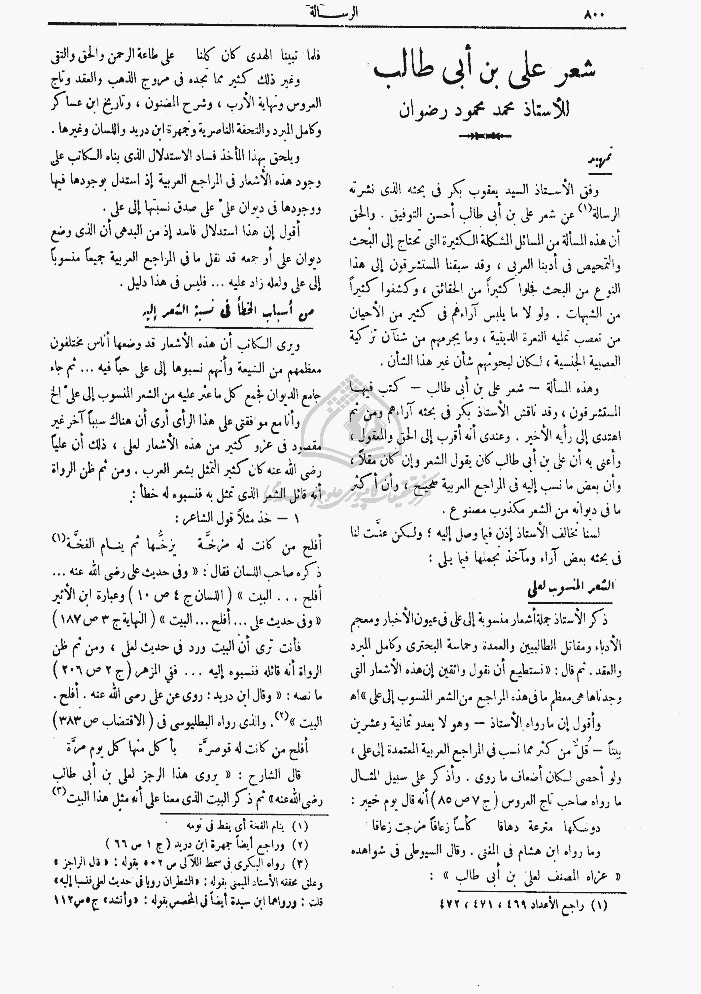 ٨٠٠
الرسالة
شعر على بن أبى طالب
للأستاذ محمد محمود رضوان
تمهيد
وفق الأستاذ السيد يعقوب بكر فى بحثه الذى نشرته
الرسالة(١) عن شعر على بن أبى طالب أحسن التوفيق . والحق
أن هذه المسألة من المسائل المشكلة الكثيرة التى تحتاج إلى البحث
والتمحيص فى أدبنا العربى ، وقد سبقنا المستشرقون إلى هذا
النوع من البحث فجلوا كثيراً من الحقائق ، وكشفوا كثيراً
من الشبهات . ولو لا ما يلابس آراءهم فى كثير من الأحيان
من تعصب تمليه النعرة الدينية ، وما يجرمهم من شنآن تزكية
العصبية الجنسية ، لكان لبحوثهم شأن غير هذا الشأن .
وهذه المسألة — شعر على بن أبى طالب — كتب فيها
المستشرقون ، وقد ناقش الأستاذ بكر فى بحثه آراءهم ومن ثم
اهتدى إلى رأيه الأخير . وعندى أنه أقرب إلى الحق والمعقول ،
وأعنى به أن على بن أبى طالب كان يقول الشعر وإن كان مقلاً ،
وأن بعض ما نسب إليه فى المراجع العربية صحيح ، وأن أكثر
ما فى ديوانه من الشعر مكذوب مصنوع .
لسنا نخالف الأستاذ إذن فيما وصل إليه ؛ ولكن عنَّت لنا
فى بحثه بعض آراء ومآخذ نجملها فيما يلى :
الشعر المنسوب لعلى
ذكر الأستاذ جملة أشعار منسوبة إلى على فى عيون الأخبار ومعجم
الأدباء ومقاتل الطالبيين والعمدة وحماسة البحترى وكامل المبرد
والعقد . ثم قال : «نستطيع أن نقول واثقين إن هذه الأشعار التى
وجدناها هى معظم ما فى هذه المراجع من الشعر المنسوب إلى على» اهـ
وأقول إن ما رواه الأستاذ — وهو لا يعدو ثمانية وعشرين
بيتاً — قُلّ من كثر مما نسب فى المراجع العربية المعتمدة إلى على ،
ولو أحصى لكان أضعاف ما روى . وأذكر على سبيل المثال
ما رواه صاحب تاج العروس (ج ٧ ص ٨٥) أنه قال يوم خيبر :
دونكها مترعة دهاقا كأساً زعافاً مزجت زعاقا
وما رواه ابن هشام فى المغنى . وقال السيوطى فى شواهده
« عزاه المصنف لعلى بن أبى طالب » :
(١) راجع الأعداد ٤٦٩ ، ٤٧١ ، ٤٧٢
فلما تبينا الهدى كان كلنا على طاعة الرحمن والحق والتقى
وغير ذلك كثير مما تجده فى مروج الذهب والعقد وتاج
العروس ونهاية الأرب ، وشرح المضنون ، وتاريخ ابن عساكر
وكامل المبرد والتحفة الناصرية وجمهرة ابن دريد واللسان وغيرها .
ويلحق بهذا المأخذ فساد الاستدلال الذى بناه الكاتب على
وجود هذه الأشعار فى المراجع العربية إذ استدل بوجودها فيها
ووجودها فى ديوان علىّ على صدق نسبتها إلى على .
أقول إن هذا استدلال فاسد إذ من البدهى أن الذى وضع
ديوان على أو جمعه قد نقل ما فى المراجع العربية جميعاً منسوباً
إلى على ولعله زاد عليه ... فليس فى هذا دليل .
من أسباب الخطأ فى نسبة الشعر إليه
ويرى الكاتب أن هذه الأشعار قد وضعها أناس مختلفون
معظمهم من الشيعة وأنهم نسبوها إلى على حباً فيه ... ثم جاء
جامع الديوان فجمع كل ما عثر عليه من الشعر المنسوب إلى علىّ الخ
وأنا مع موافقتى على هذا الرأى أرى أن هناك سبباً آخر غير
مقصود فى عزو كثير من هذه الأشعار لعلى ، ذلك أن علياً
رضى الله عنه كان كثير التمثل بشعر العرب . ومن ثم ظن الرواة
أنه قائل الشعر الذى تمثل به فنسبوه له خطأ :
١ — خذ مثلاً قول الشاعر :
أفلح من كانت له مزخَّة يزخُّها ثم ينام الفخَّة(١)
ذكره صاحب اللسان فقال : « وفى حديث على رضى الله عنه ...
أفلح ... البيت » ( اللسان ج ٤ ص ١٠ ) وعبارة ابن الأثير
« وفى حديث على ... أفلح ... البيت » ( النهاية ج ٣ ص ١٨٧ )
فأنت ترى أن البيت ورد فى حديث لعلى ، ومن ثم ظن
الرواة أنه قائله فنسبوه إليه ... ففى المزهر ( ج ٢ ص ٢٠٦ )
ما نصه : « وقال ابن دريد : روى عن على رضى الله عنه . أفلح .
البيت »(٢). والذى رواه البطليوسى فى ( الاقتضاب ص ٣٨٣ )
أفلح من كانت له قوصرَّة يأكل منها كل يوم مرَّة
قال الشارح : « يروى هذا الرجز لعلى بن أبى طالب
رضى الله عنه» ثم ذكر البيت الذى معنا على أنه مثل هذا البيت(٣)
(١) ينام الفخة أى يغط فى نومه
(٢) وراجع أيضاً جمهرة ابن دريد ( ج ١ ص ٦٦ )
(٣) رواه البكرى فى سمط اللآلى ص ٥٠٢ بقوله : « قال الراجز »
وعلق محققه الأستاذ الميمنى بقوله : «الشطران رويا فى حديث لعلى فنسبا إليه»
قلت : ورواهما ابن سيدة أيضاً فى المخصص بقوله : «وأنشد» ج ٥ ص ١١٢